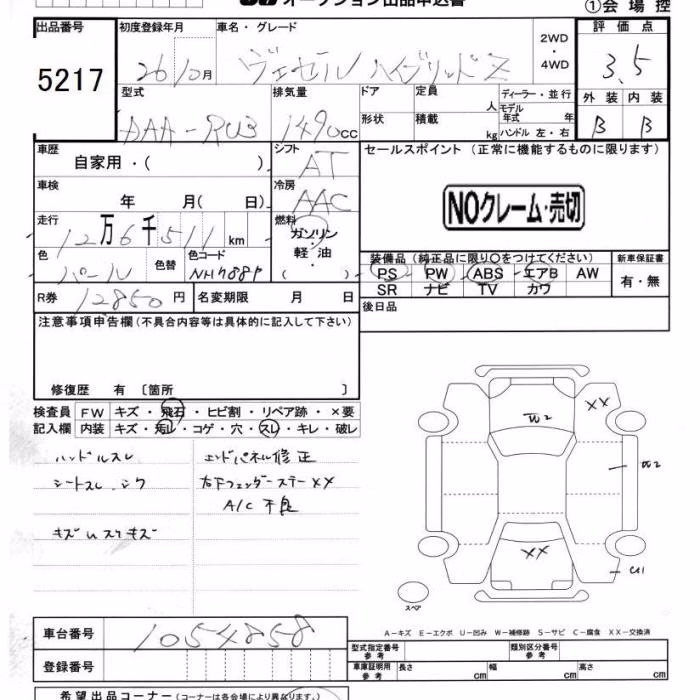 オークション出品申込書
①会場控
出品番号 初度登録年月 車名・グレード 評価点
5217 26 10月 ヴェゼル ハイブリッド Z 2WD ・ 4WD 3.5
型式 排気量 ドア 定員 人 ディーラー・並行 外装 内装
DAA-RU3 1490cc 形状 積載 kg モデル年式 年 ハンドル 左・右 B B
車歴 自家用・( ) シフト AT セールスポイント (正常に機能するものに限ります)
車検 年 月( 日) 冷房 AAC NOクレーム・売切
走行 12万6千511km 燃料 ガソリン・軽油・( )
色 パール 色替 色コード NH788P 装備品 (純正品に限り○をつけてください) 新車保証書
PS PW ABS エアB AW 有・無
SR ナビ TV カワ
R券 12850円 名変期限 月 日 後日品
注意事項申告欄(不具合内容等は具体的に記入して下さい)
修復歴 有 〔箇所 〕
検査員 FW キズ・飛石・ヒビ割・リペア跡・×要
記入欄 内装 キズ・汚レ・コゲ・穴・スレ・キレ・破レ
ハンドルスレ エンドパネル修正
シートスレ.シワ 右下フェンダーステーXX
A/C不良
キズUスリキズ
W2
XX
W2
XX
CU1
スペア
A-キズ E-エクボ U-凹み W-補修跡 S-サビ C-腐食 XX-交換済
車台番号 1054858 型式指定番号 参考 類別区分番号 参考
登録番号 車庫証明用 参考 長さ cm 幅 cm 高さ cm
希望出品コーナー (コーナーは各会場により異なります)